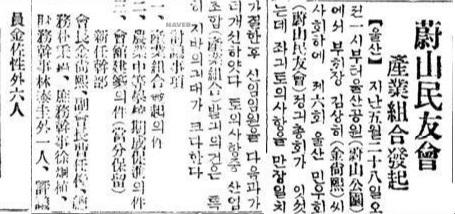 蔚山民友會
産業組合發起
【울산】 지난五월二十八일오
뎐一시부터울산공원(蔚山公園)
에서 부회장 김상희(金尙熙)씨
사회하에 뎨六회 울산 민우회
(蔚山民友會)정긔총회가 잇섯
는데 좌긔토의사항을 만장일치
가결한후 신임임원을 다음과가
티개선하얏다 토의사항중 산업
조합(産業組合)발긔의건은 특
히 지방의긔대가 크다한다
討議事項
一、産業組合發起의件
一、農業中等學校期成促進의件
一、會館建築의件(當分保留)
新任幹部
會長金尙熙、副會長 總
務 庶務幹事徐炯植、
財務幹事林泰 外一人、評議
員金佐性外六人
NAVER